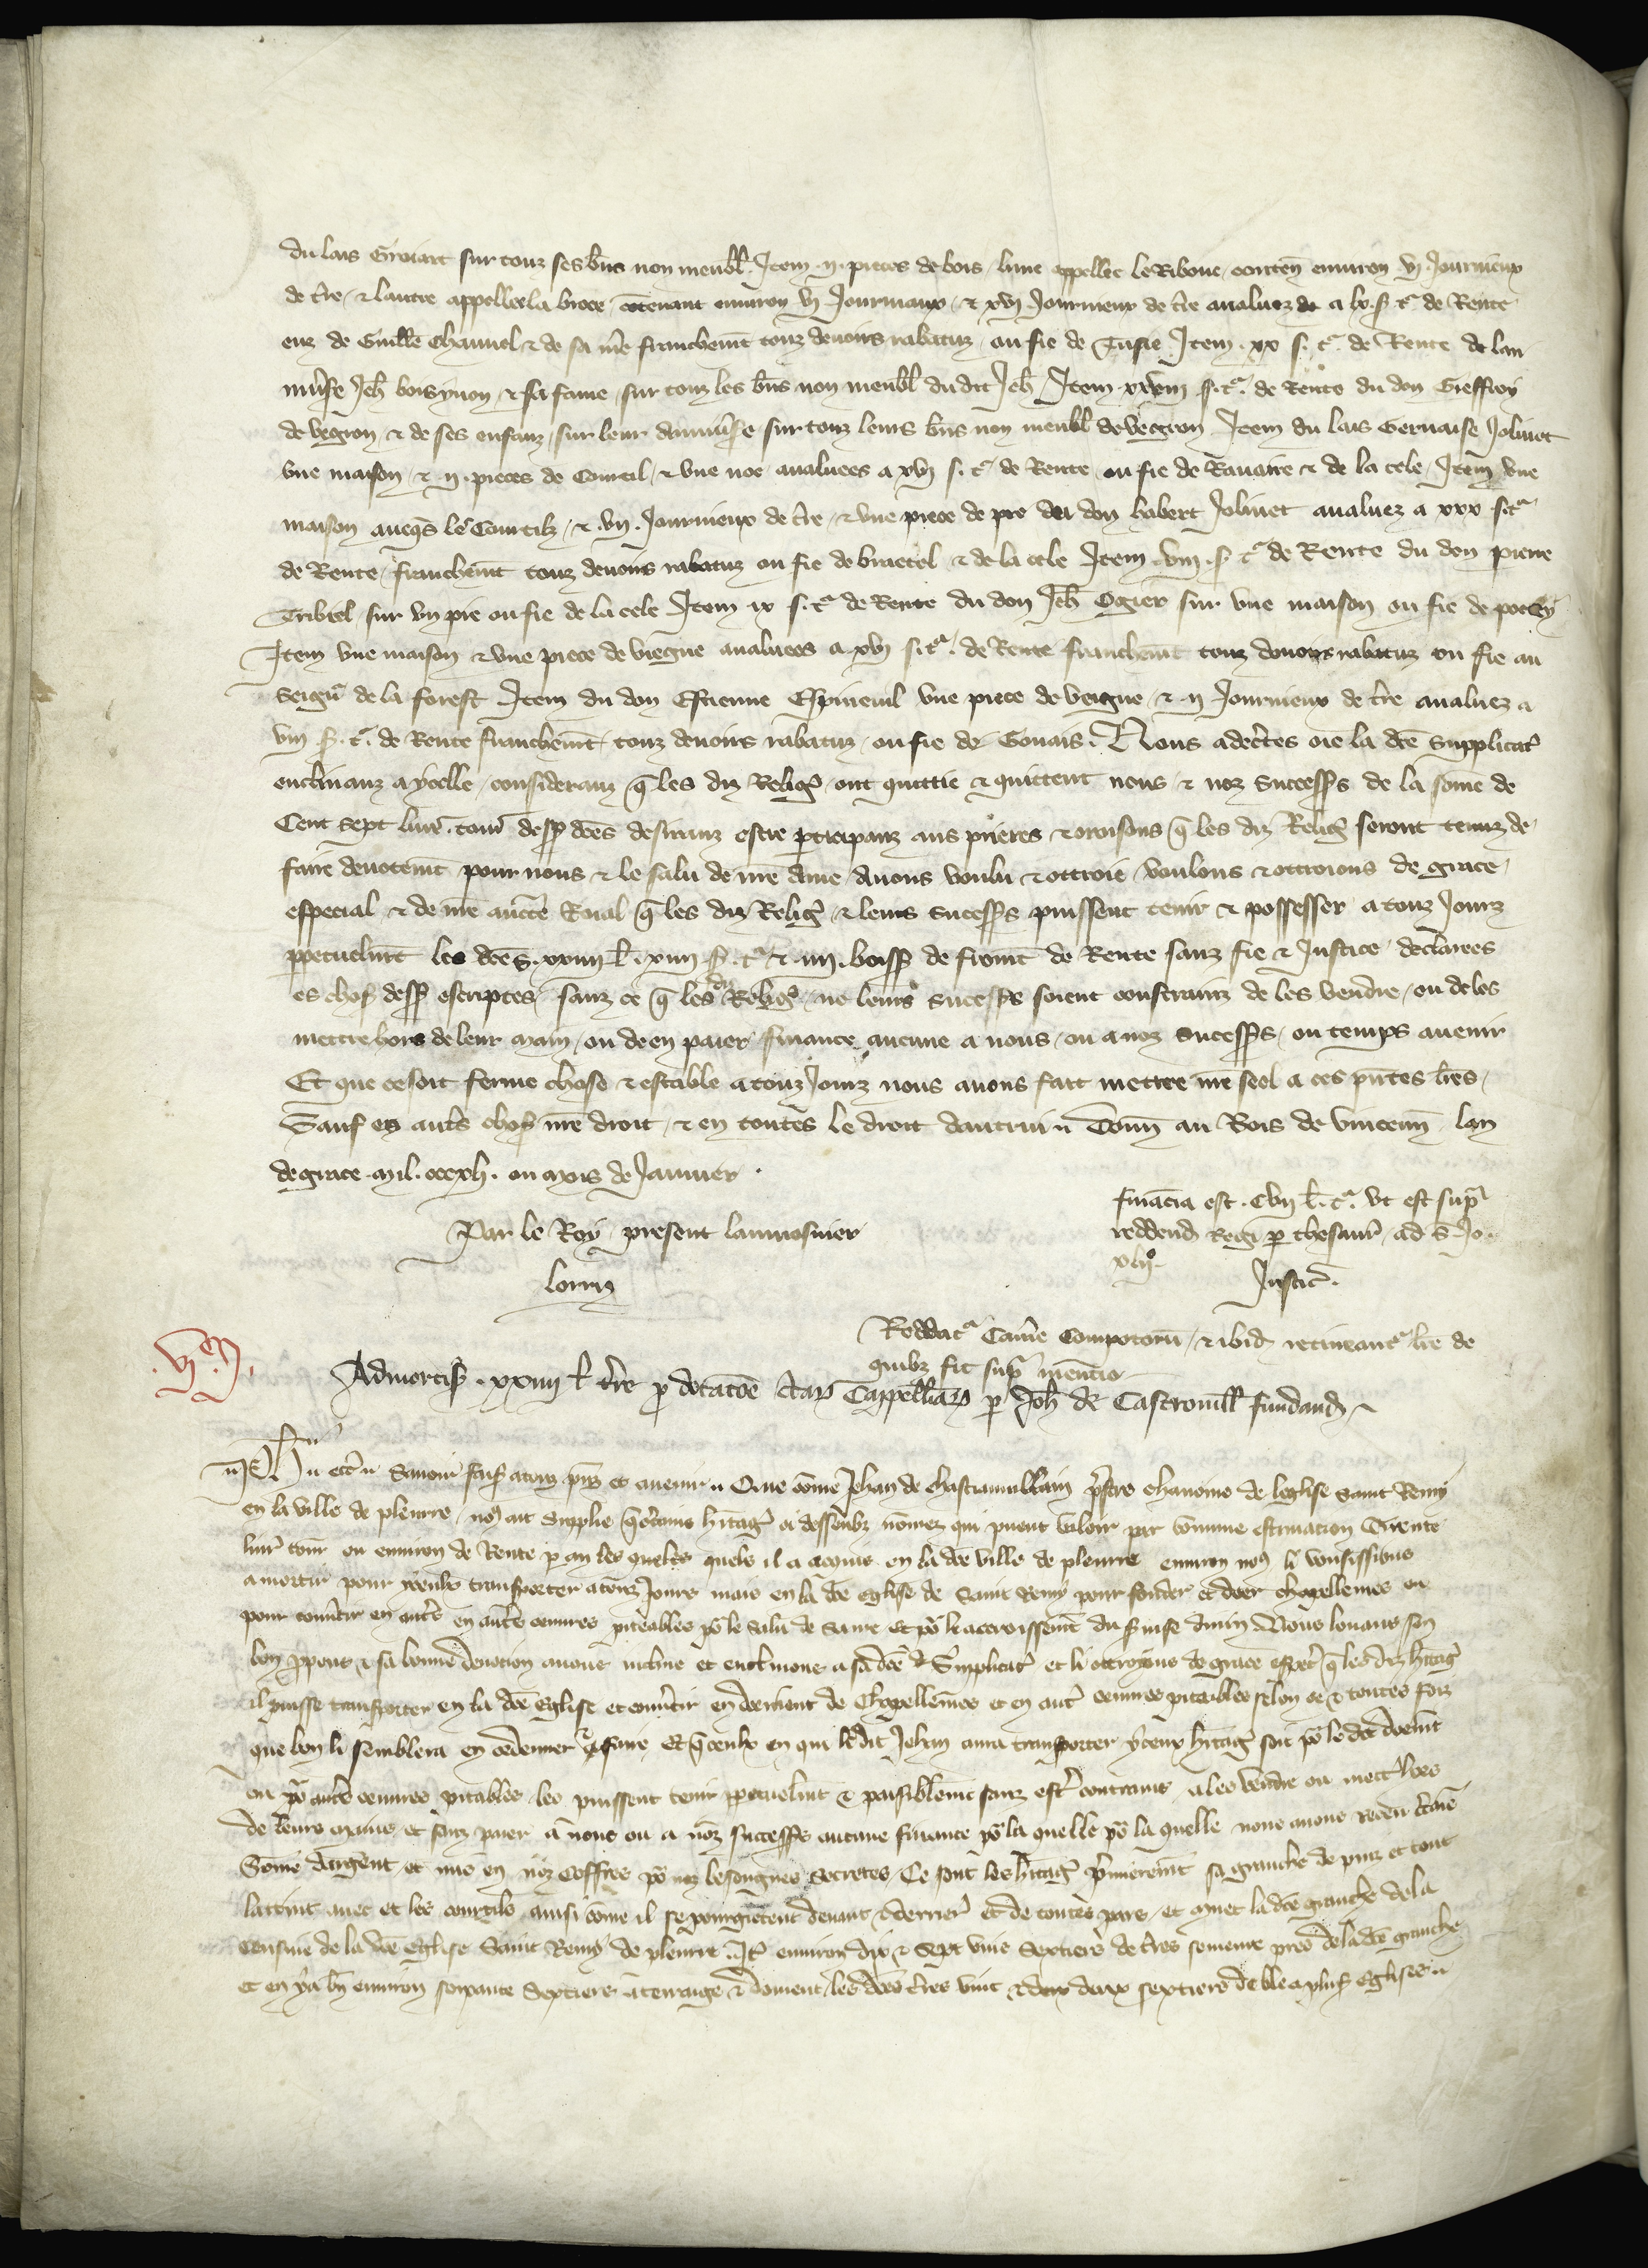 du lais Giroiart sur touz ses bñs non meubl̃. Item .ij. pieces de bois lune appellee le Riboue conteñ enuiron vj Journieux
de t̃re & lautre appellee la broce contenant enuiron vj Journiaux & xvj Journieux de t̃re aualuez a lx. s̃ tͣ de Rente
euz de Guill̃e Chauuel & de sa m̃e franchem̃t touz deuoirs rabatuz ou fie de Tusie Item .xx s̃. tͣ. de Rente de lau
mosñe Jeh̃ boisynon & sa fame sur touz les bñs non meubl̃ du dit Jeh̃ Item s̃. tͣ. de Rente du don Gieffroy
de vegron & de ses enfanz sur leur sur touz leurs bñs non meubl̃ de vegron Item du lais Geruaise Joliuet
vne maison & .ij. pieces de Courtil & vne noe aualuees a xvj s̃. tͣ de Rente ou fie de Rauaire & de la cele Item vne
maison auecq̃s le Courtilz & .vij. Journieux de t̃re & vne piece de pre du don hubert Joliuet aualuez a xxx s̃ tͣ
de Rente franchem̃t touz deuoirs rabatuz ou fie de braetel & de la cele Item .viij. s̃ tͣ de Rente du don pierre
Tribiel sur vn pre ou fie de la cele Item ix s̃. tͣ de Rente du don Jeh̃ Ogier sur vne maison ou fie de
Item vne maison & vne piece de viegne aualuees a xvj s̃. tͣ. de Rente franchem̃t touz deuoirs rabatuz ou fie au
Seigñr de la forest Item du don Estienne Espineuil vne piece de veigne & .ij Journieux de t̃re aualuez a
viij s̃. tͣ. de Rente franchem̃t touz deuoirs rabatuz ou fie de Gouais. Nous adec̃tes oie la dc̃e supplicac̃
enclinanz a ycelle consideranz q̃ les diz Religˀ ont quittie & quittent nous & noz success̃s de la som̃e de
Cent sept liur̃. tour̃ dess̃ dc̃es desiranz estre p̱ticipanz aus prieres & oroisons q̃ les diz Religˀ seront tenuz de
faire deuotem̃t pour nous & le salu de nr̃e ame Auons voulu & ottroie voulons & ottroions de grace
especial & de nr̃e auct̃e Roial q̃ les diz Religˀ & leurs success̃s puissent tenir & possesser a touz Jourz
p̱petuelm̃t les dc̃es .xxiiij l̃. .xiiij s̃. tͣ & .iiij. boiss̃ de from̃t de Rente sanz fie & Justice declarees
es chos̃ dess̃ escriptes sanz ce q̃ les diz Religˀ ne leurs success̃s soient constrainz de les vendre ou de les
mettre hors de leur main ou de en paier finance aucune a nous ou a noz success̃s ou temps auenir
Et que ce soit ferme chose & estable a touz Jourz nous auons fait mettre nr̃e seel a ces pñtes lr̃es
Sauf en aut̃s chos̃ nr̃e droit & en toutes le droit dautrui Donn̄ au Bois de vincenn̄ lan
de grace mil. cccxlj. ou mois de Januier.
Par le Roy present laumosnier
Lorriz
financia est. Cvij l̃. tͣ. vt est sup̃
reddend̃ Regi p̱ thesaur̃ ad s̃ Jo.
xlijº.
Justic̃.
Reddatͣ Cam̃e Compotor̃ & ibid̃ retineantͣ lr̃e de
quibz fit sup̃ mentio
.vjᵉ.
Admortis̃ .xxiiij l̃ t̃re p̱ dotac̃õe Cappellaniaꝝ p̱ Joh̃ de Castrouill̃ fundand̃
Ph̃ etc̃ Sauoir fais̃ a touz pñz et auenir Que com̃e Jehan de Chastiauuillain p̃stre chanoine de leglise saint Remy
en la ville de pleurre nˀ ait supplie q̃ c̃tains h̃itagˀ ci dessoubz nom̃ez qui pueent valoir par commune estimacion Trente
liur̃ tour̃ ou enuiron de Rente p̱ an les queles quels il a acquis en la dc̃e ville de pleurre enuiron nˀ li vousissions
amortir pour yceulx transporter a touz Jours mais en la dc̃e eglise de saint Remy pour fonder et doer chapellenies ou
pour conũtir en aut̃s en aut̃s oeuures piteables po˞ le salu de same et po˞ le accroissem̃t du s̃uise diuin Nous louans son
bon p̱pous & sa bonne deuotion auons incline et enclinons a sa dc̃e supplicac̃ et li ottroions de grace esp̱c̃ q̃ les diz h̃itagˀ
il puisse transporter en la dc̃e Eglise et conũtir en doement de Chapellenies et en aut̃ oeuures piteables selon ce & toutes foiz
que bon li semblera en ordenner & faire Et q̃ ceulx en qui le dit Jehan aura transporter yceux h̃itagˀ soit po˞ le dit doem̃t
ou po˞ aut̃s oeuures pitables les puissent tenir p̱petuelm̃t & paisiblem̃t sanz est̃ contrains a les vendre ou mett̃ hors
de leurs mains et sanz paier a nous ou a noz success̃s aucune finance po˞ la quelle po˞ la quelle nous auons receu c̃taine
Som̃e dargent et mis en noz coffres po˞ noz besoignes secretes Ce sont les h̃itagˀ p̃mierem̃t sa granche de et tout
lattint auec et les courtils ainsi com̃e il se pourgietent deuant & derrier̃ et de toutes pars et muet la dc̃e granche de la
censiue de la dc̃e Eglise Saint Remy de pleurre It̃ enuiron dix & sept vins Sextiers de t̃res semence pres de la dc̃e granche
et en y a bñ enuiron soixante Sextiers a terraige & doiuent les dc̃es t̃res vint & deux sextiers de ble a plus̃ Eglises